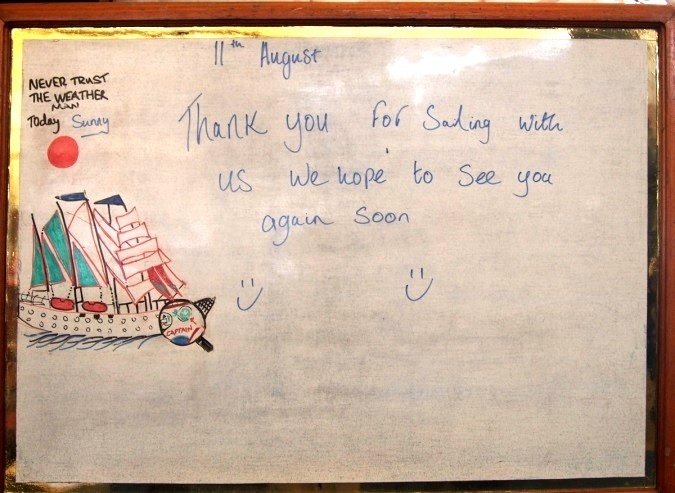 11th August
NEVER TRUST
THE WEATHER
MAN
Today Sunny
Thank you for Sailing with
us We hope to See you
again Soon
CAPTAIN